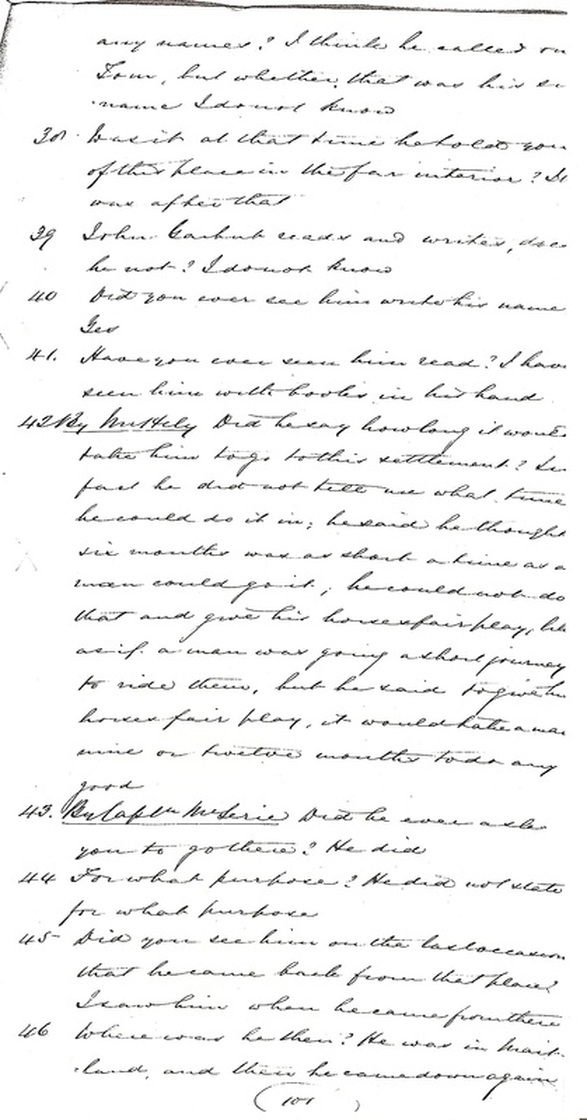 any names? I think he called on
Tom, but whether that was his
name I do not know
38. Was it at that time he told you
of this place in the far interior? It
was after that
39 John reads and writes, does
he not? I do not know
40 Did you ever see him write his name
Yes
41. Have you ever seen him read? I have
seen him with books in his hand
42 By Mr Hely Did he say how long it would
take him to go to this settlement? In
fact he did not tell me what time
he could do it in; he said he thought
six months was as short a time as a
man could go it; he could not do
that and give his horses fair play, he
as if a man was going a short journey
to ride them, but he said to give
horses fair play, it would take a man
nine or twelve months to do any
good
43. By Captn Did he ever ask
you to go there? He did
44 For what purpose? He did not state
for what purpose
45 Did you see him on the last occasion
that he came back from that place?
I saw him when he came from there
46 Where was he then? He was in Mait-
land, and then he came down again
(101)